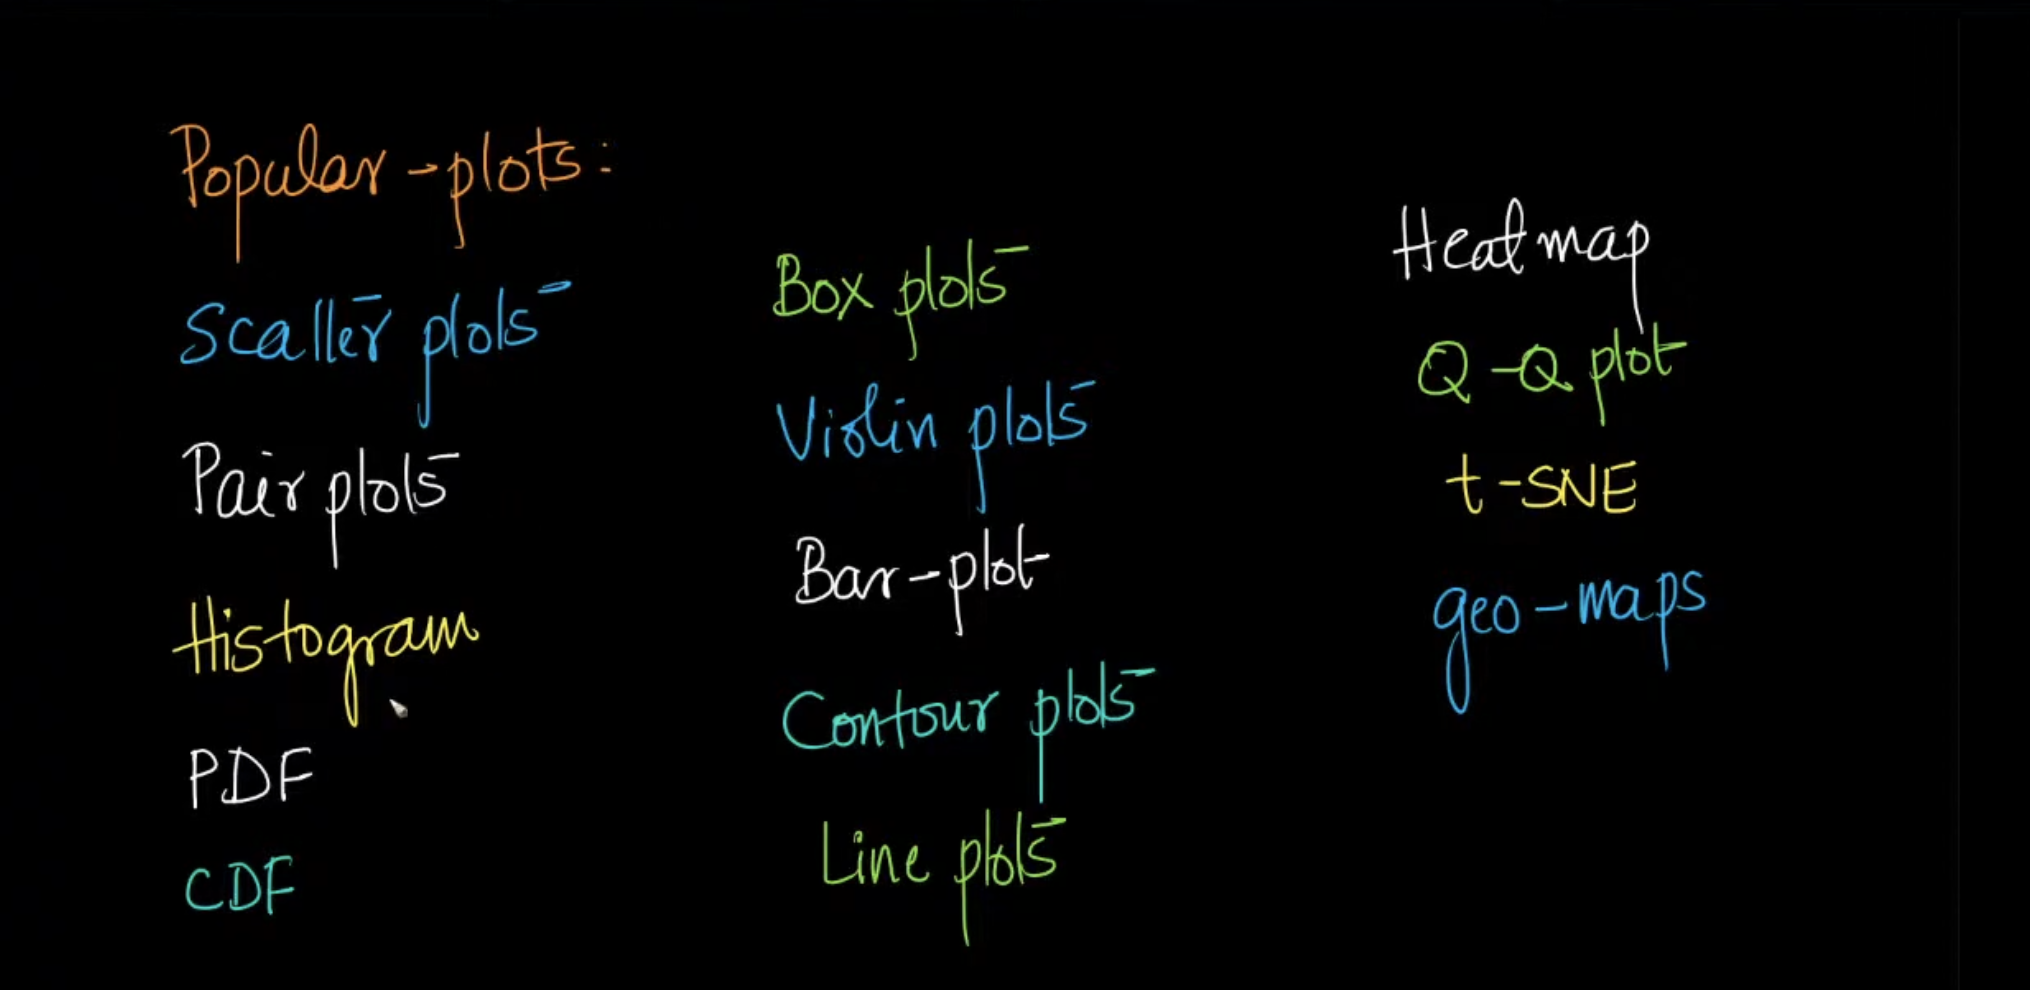 Popular-plots:
Scatter plots
Pair plots
Histogram
PDF
CDF
Box plots
Violin plots
Bar-plot
Contour plots
Line plots
Heatmap
Q-Q plot
t-SNE
geo-maps